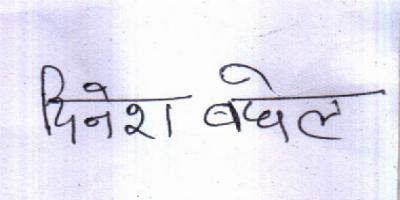 दिनेश बघेल